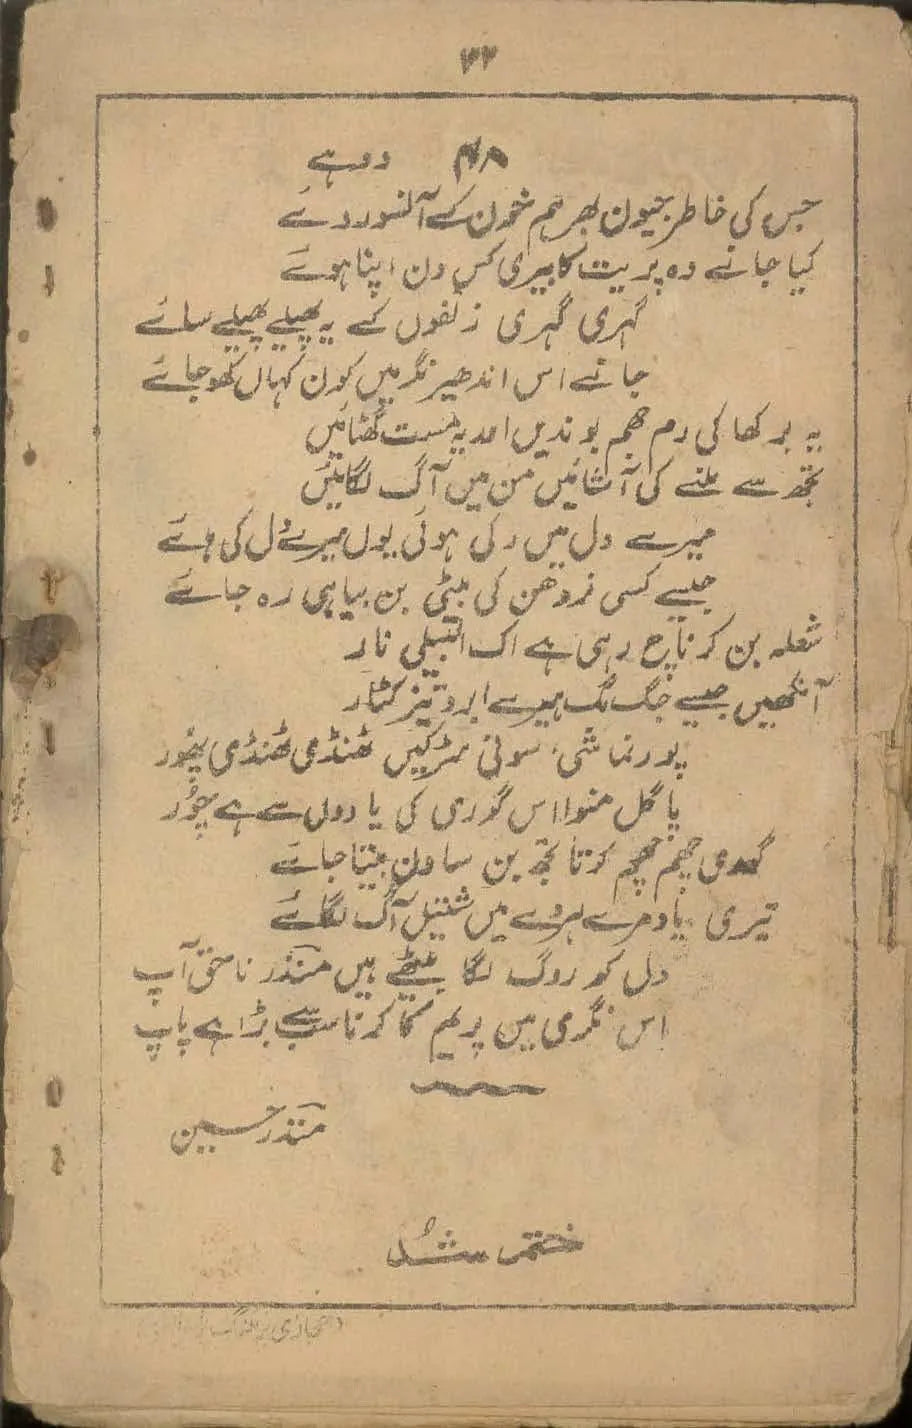 ۳۲
۴۸ دوہے
جس کی خاطر جیون بھر ہم خون کے آنسو روئے
کیا جانے وہ پریت کا بیری کس دن اپنا ہوئے
گہری گہری زلفوں کے یہ پھیلے پھیلے سائے
جانے اس اندھیر نگر میں کون کہاں کھو جائے
یہ برکھا کی رم جھم بوندیں اور یہ مست گھٹائیں
تجھ سے ملنے کی آشائیں من میں آگ لگائیں
میرے دل میں رکی ہوئی یوں میرے دل کی ہائے
جیسے کسی نردھن کی بیٹی بن بیاہی رہ جائے
شعلہ بن کر ناچ رہی ہے اک البیلی نار
آنکھیں جیسے جگ مگ ہیرے ابرو تیز کٹار
پورنماشی، سونی سڑکیں ٹھنڈی ٹھنڈی پھور
پاگل منوا اس گوری کی یادوں سے ہے چور
گھدی جھم جھم کرتا تجھ بن ساون بیتا جائے
تیری یاد مرے ہردے میں شیتل آگ لگائے
دل کو روگ لگا بیٹھے ہیں منذر ناحق آپ
اس نگری میں پریم کا کرنا سب سے بڑا ہے پاپ
منذر حسین
ختم شد